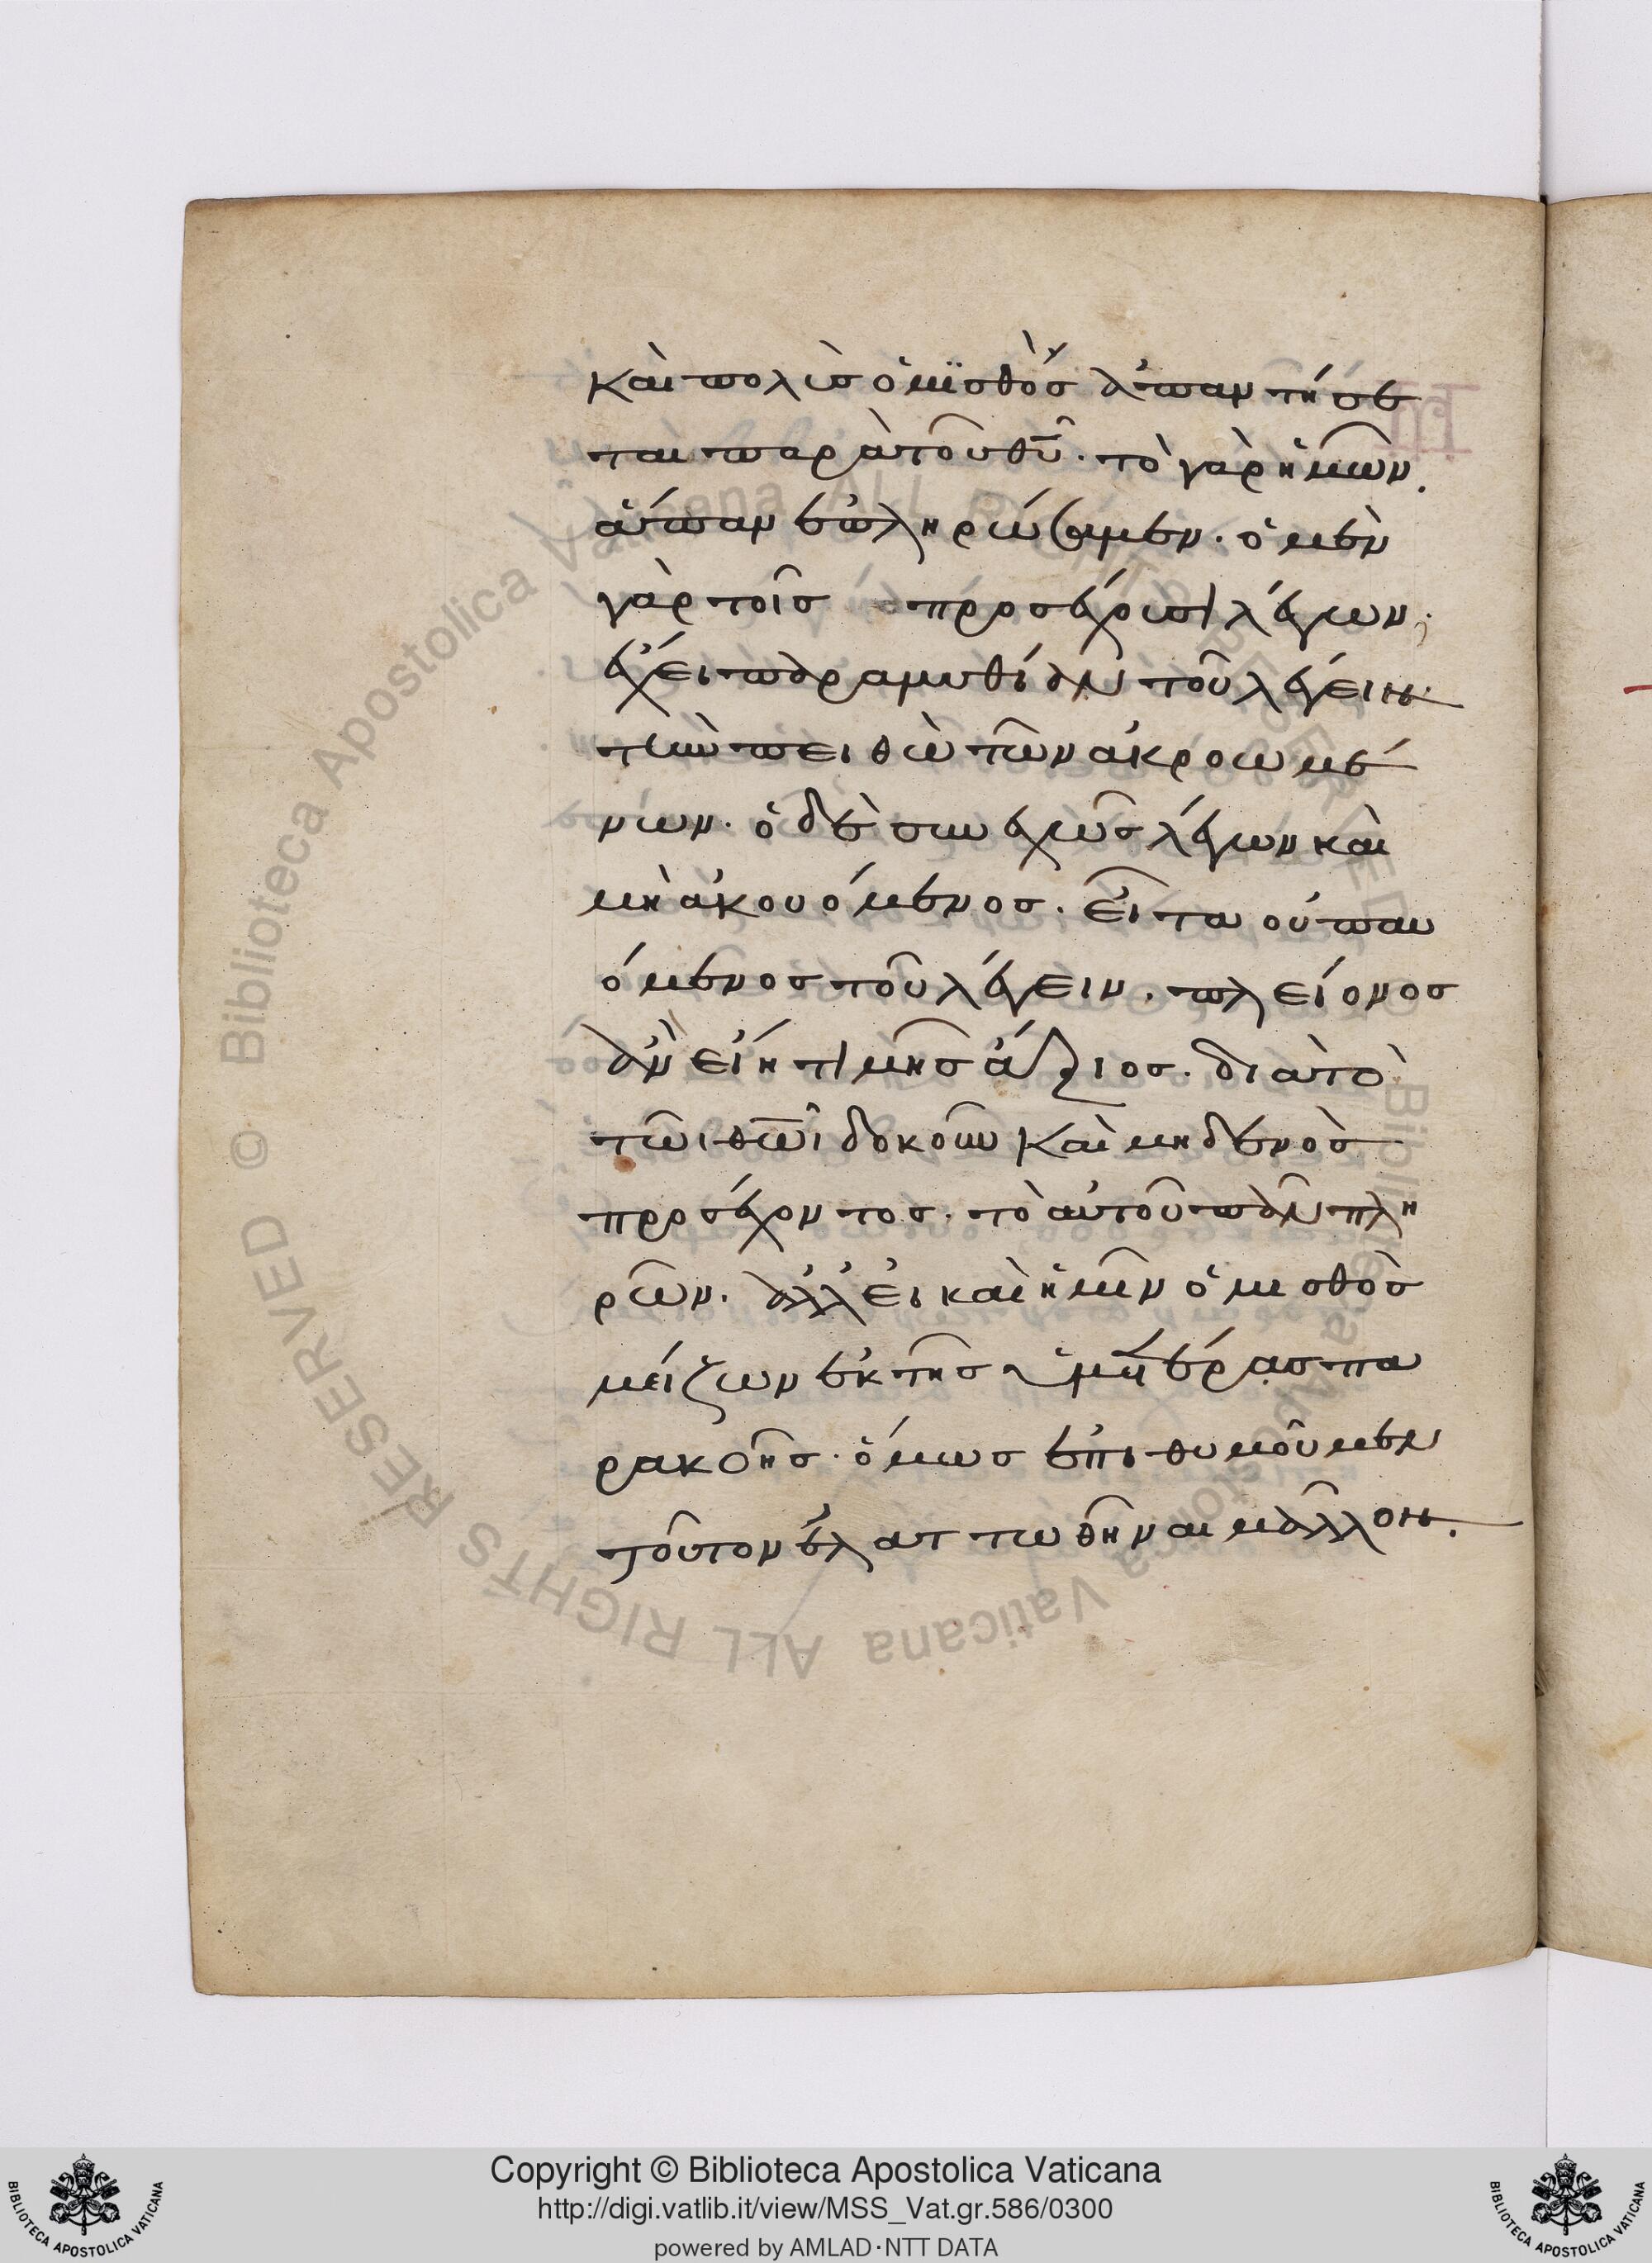 καὶ πολὺσ ὁ μϊσθὸσ ἀπαντήσε
ται παρὰ τοῦ θῦ. τὸ γὰρ ἡμῶν.
ἅπαν ἐπληρώσαμεν. ὁ μὲν
γὰρ τοῖσ προσέχουσι λέγων.
ἔχει παραμυθίαν τοῦ λέγειν.
τὴν πειθὼ τῶν ἀκροωμέ
νων. ὁ δὲ συνεχῶσ λέγων καὶ
μὴ ἀκουόμενοσ. εἶτα οὐ παυ
όμενοσ τοῦ λέγειν. πλείονοσ
ἂν εἴη τιμῆσ ἄξιοσ. διὰ τὸ
τῶι θῶι δοκοῦν καὶ μηδενὸσ
προσέχοντοσ. τὸ αὐτοῦ πᾶν πλη
ρῶν. ἀλλ' εἰ καὶ ἡμῖν ὁ μισθὸσ
μείζων ἐκ τῆσ ὑμετέρασ πα
ρακοῆσ. ὅμωσ ἐπιθυμοῦμεν
τοῦτον ἐλαττωθῆναι μᾶλλον.
Copyright © Biblioteca Apostolica Vaticana
http://digi.vatlib.it/view/MSS_Vat.gr.586/0300
powered by AMLAD·NTT DATA
BIBLIOTECA APOSTOLICA VATICANA
BIBLIOTECA APOSTOLICA VATICANA
© Biblioteca Apostolica Vaticana ALL RIGHTS RESERVED
Biblioteca Apostolica Vaticana ALL RIGHTS RESERVED